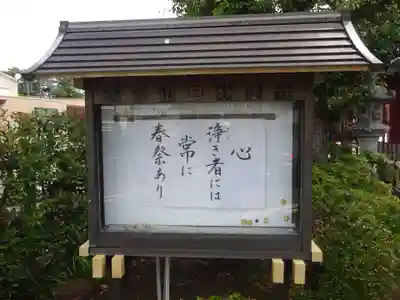 心
浄き者には
常に
春祭あり